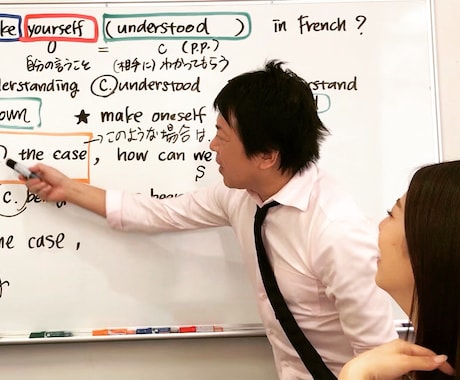 ke yourself (understood) in French?
O = C (P.P.)
自分の言うこと (相手に)わかってもらう
derstanding C. understood stand
own ★ make oneself
→このような場合は、
the case, how can we
S
C. be
he case,